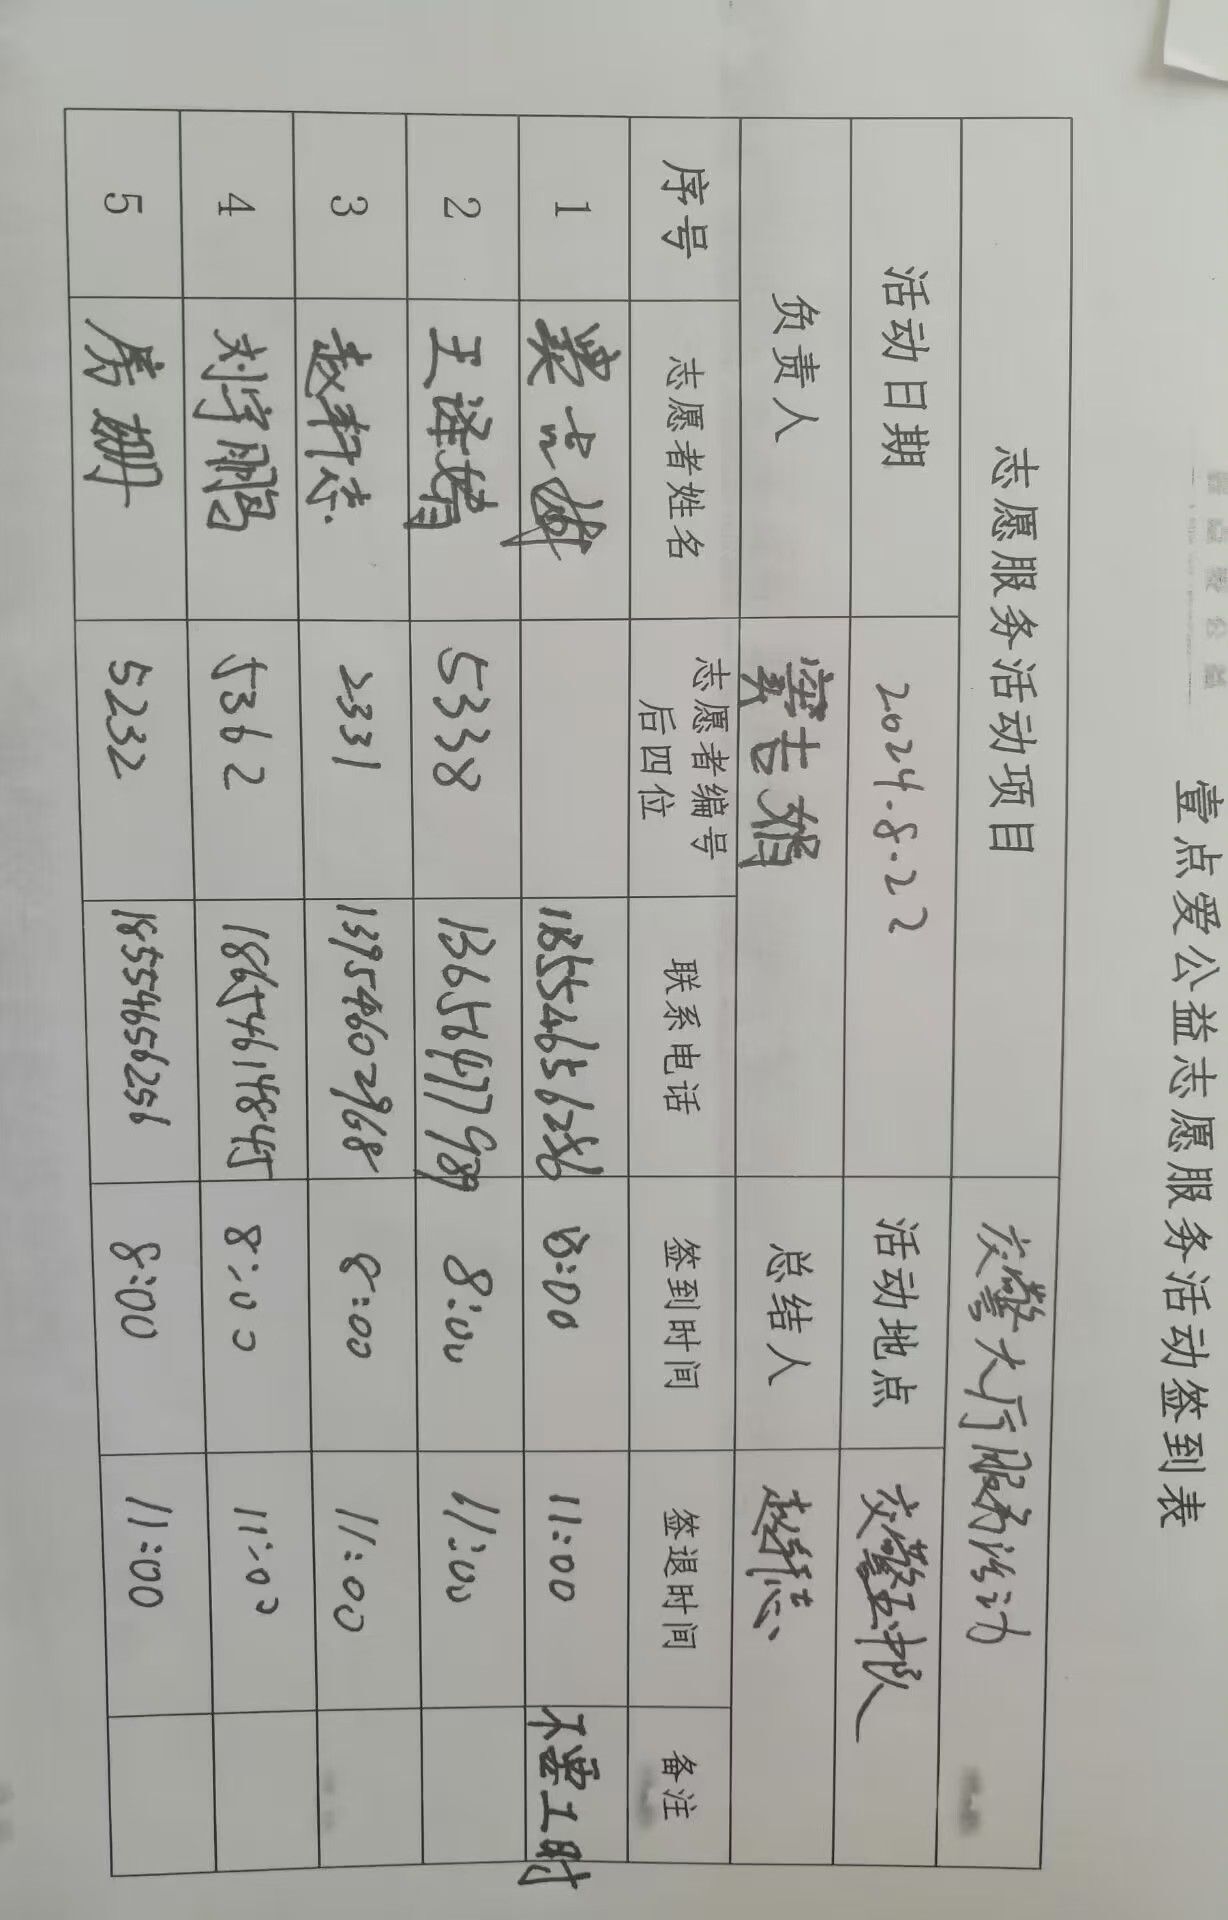 壹点爱公益志愿服务活动签到表
志愿服务活动项目 交警大厅服务活动
活动日期 2024.8.22 活动地点 交警五中队
负责人 总结人
序号 志愿者姓名 志愿者编号后四位 联系电话 签到时间 签退时间 备注
1 8:00 11:00 不要工时
2 王泽婧 5338 8:00 11:00
3 赵轩志 2331 13954602968 8:00 11:00
4 刘宇鹏 5362 18654614845 8:00 11:00
5 房姗 5232 18554656256 8:00 11:00